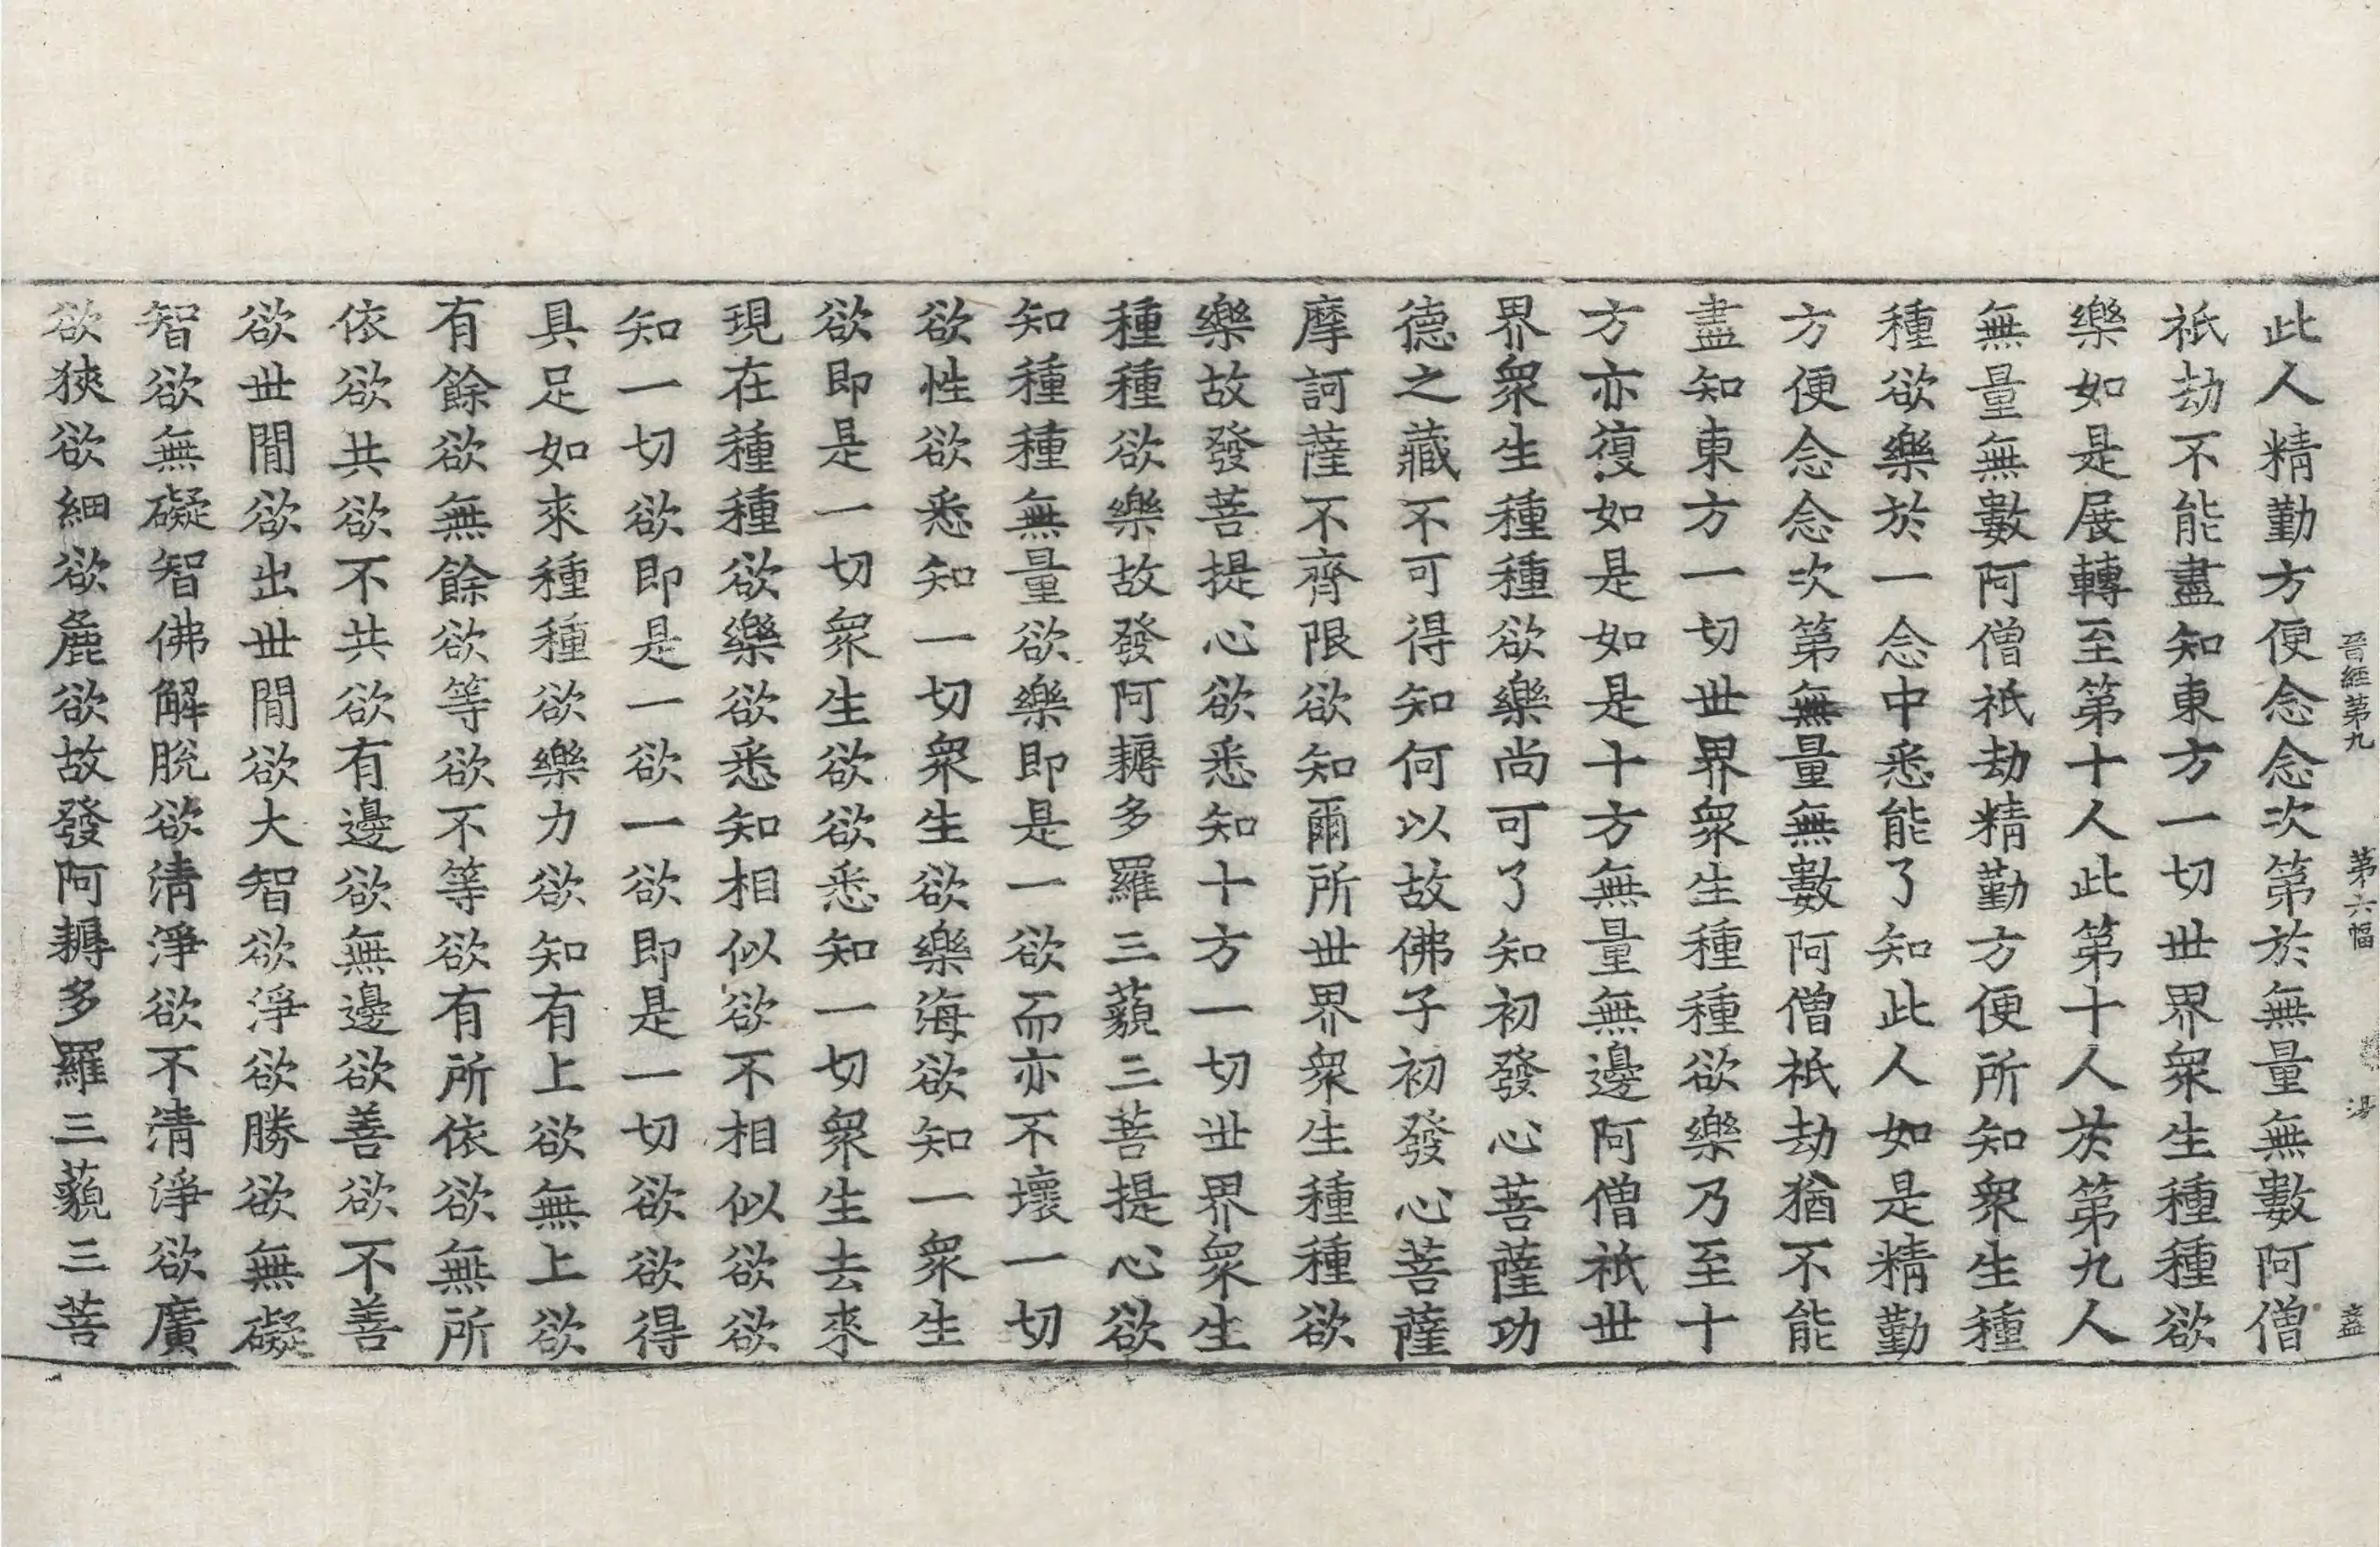 晉經第九　第六幅　湯　盡
此人精勤方便念念次第於無量無數阿僧
祇劫不能盡知東方一切世界衆生種種欲
樂如是展轉至第十人此第十人於第九人
無量無數阿僧祇劫精勤方便所知衆生種
種欲樂於一念中悉能了知此人如是精勤
方便念念次第無量無數阿僧祇劫猶不能
盡知東方一切世界衆生種種欲樂乃至十
方亦復如是如是十方無量無邊阿僧祇世
界衆生種種欲樂尚可了知初發心菩薩功
德之藏不可得知何以故佛子初發心菩薩
摩訶薩不齊限欲知爾所世界衆生種種欲
樂故發菩提心欲悉知十方一切世界衆生
種種欲樂故發阿耨多羅三藐三菩提心欲
知種種無量欲樂即是一欲而亦不壞一切
欲性欲悉知一切衆生欲樂海欲知一衆生
欲即是一切衆生欲欲悉知一切衆生去來
現在種種欲樂欲悉知相似欲不相似欲欲
知一切欲即是一欲一欲即是一切欲欲得
具足如來種種欲樂力欲知有上欲無上欲
有餘欲無餘欲等欲不等欲有所依欲無所
依欲共欲不共欲有邊欲無邊欲善欲不善
欲世間欲出世間欲大智欲淨欲勝欲無礙
智欲無礙智佛解脫欲清淨欲不清淨欲廣
欲狹欲細欲麁欲故發阿耨多羅三藐三菩